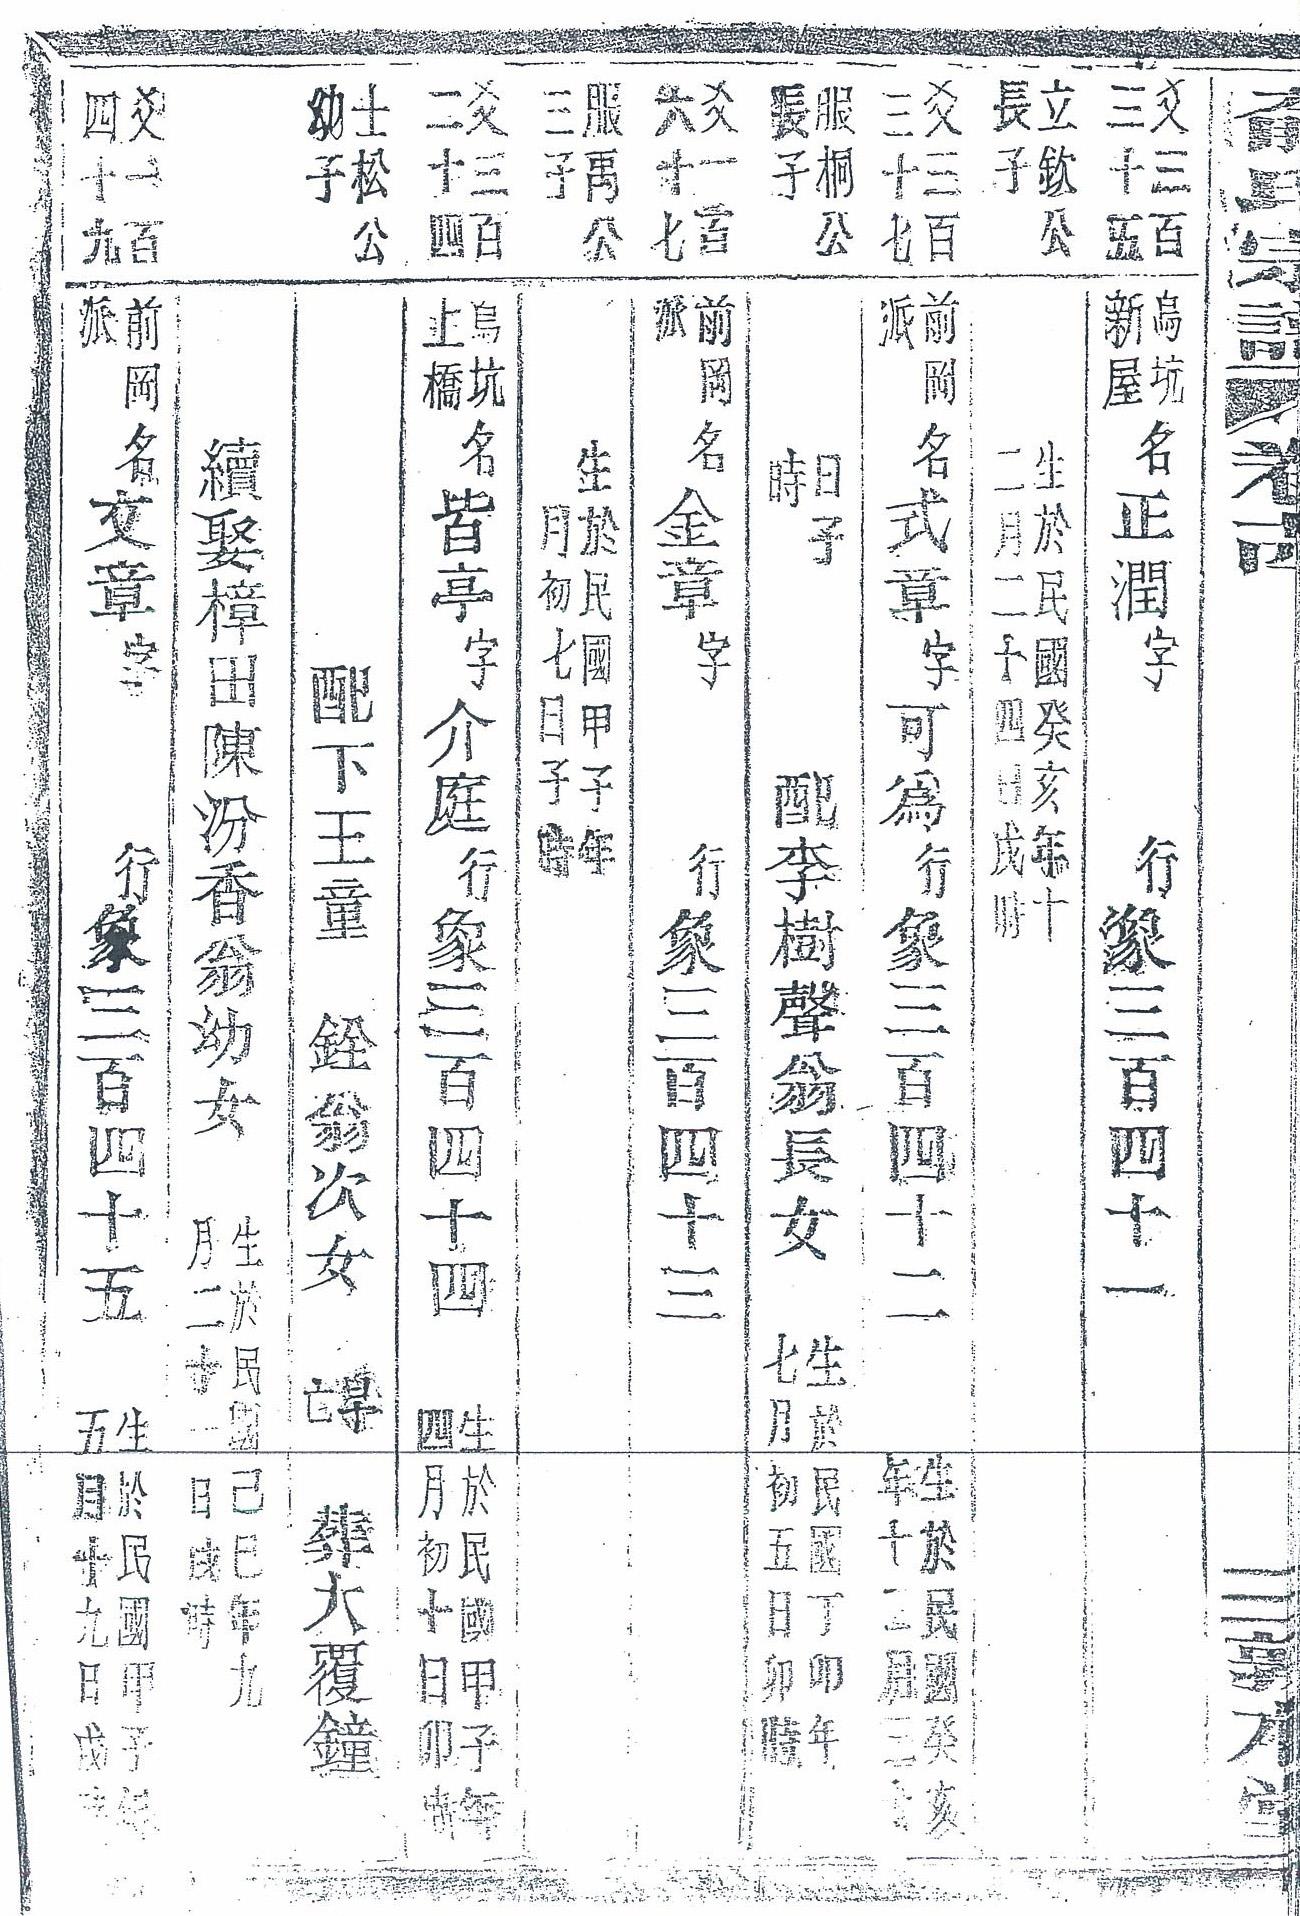 爻三百
三十五
烏坑
新屋
名正潤字
行象三百四十一
立欽公
長子
生於民國癸亥年十
二月二十四日戌時
爻三百
三十七
前岡
派
名式章字可為行象三百四十二
生於民國癸亥
年十二月三十
服桐公
長子
日子
時
配李樹聲翁長女
生於民國丁卯年
七月初五日卯時
爻一百
六十七
前岡
派
名金章字
行象三百四十三
服禹公
三子
生於民國甲子年
月初七日子時
爻三百
二十四
烏坑
上橋
名皆亭字介庭行象三百四十四
生於民國甲子年
四月初十日卯時
士松公
幼子
配下王童 銓翁次女
早
亡
葬大覆鐘
續娶樟田陳汾香翁幼女
生於民國己巳年九
月二十一日戌時
爻一百
四十九
前岡
派
名文章字
行象三百四十五
生於民國甲子年
五月十九日戌